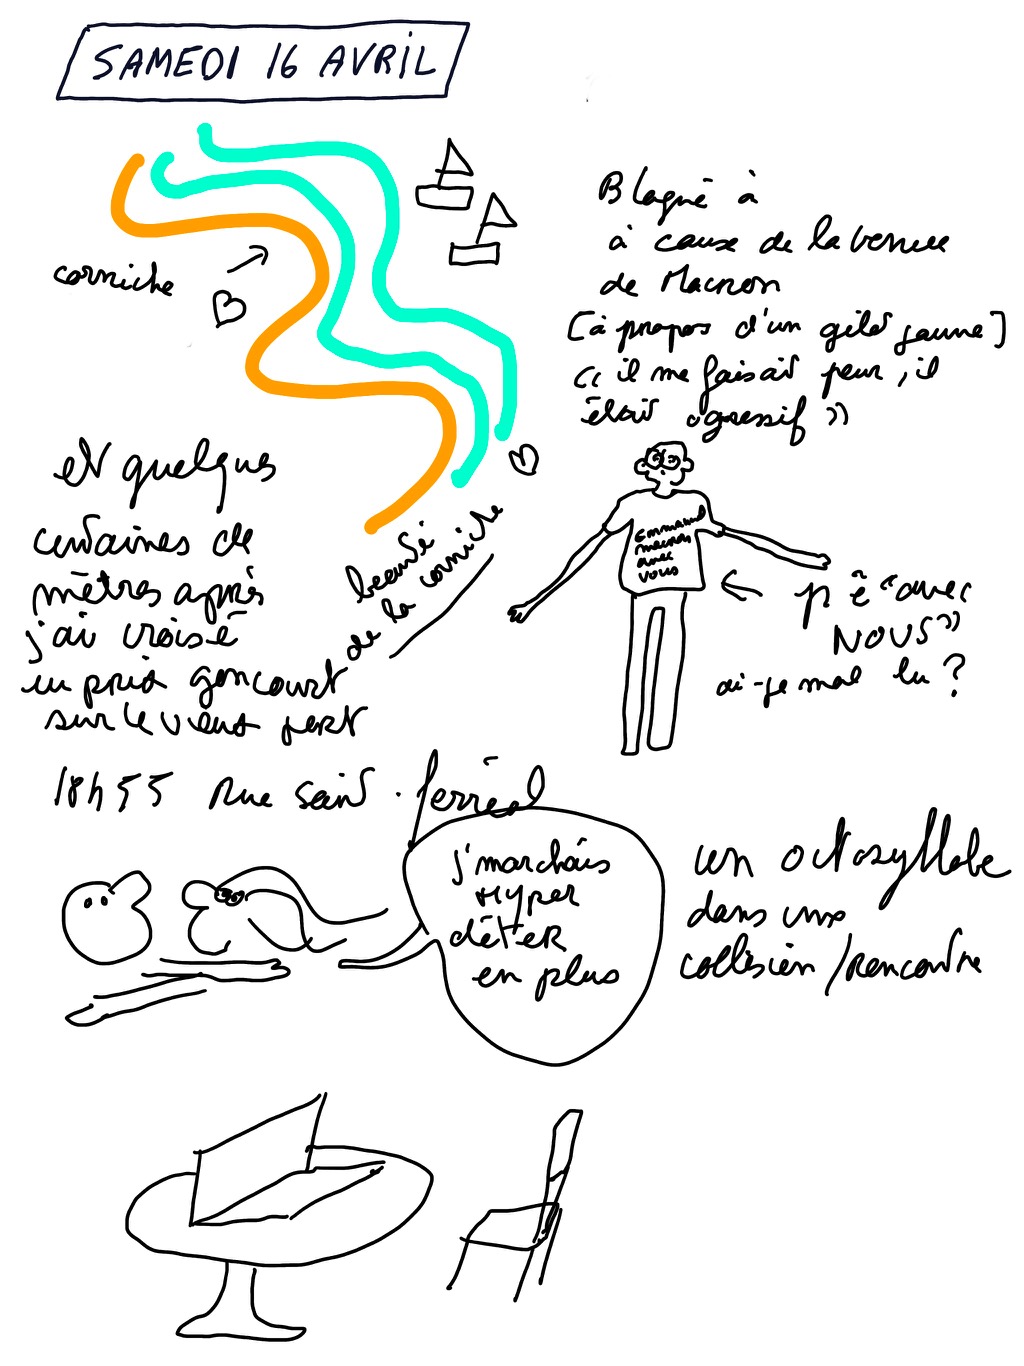 SAMEDI 16 AVRIL
corniche
Blaguė à
à cause de la venue
de Macron
[à propos d'un gilet jaune]
« il me faisait peur, il
était agressif »
et quelques
centaines de
mètres après
j'ai croisé
un prix goncourt
sur le vieux port
beauté
de la corniche
Emmanuel
macron
avec
vous
p ê "avec
NOUS"
ai-je mal lu ?
18h55 Rue Saint-ferréol
j'marchais
Hyper
déter
en plus
un octosyllabe
dans une
collision/rencontre